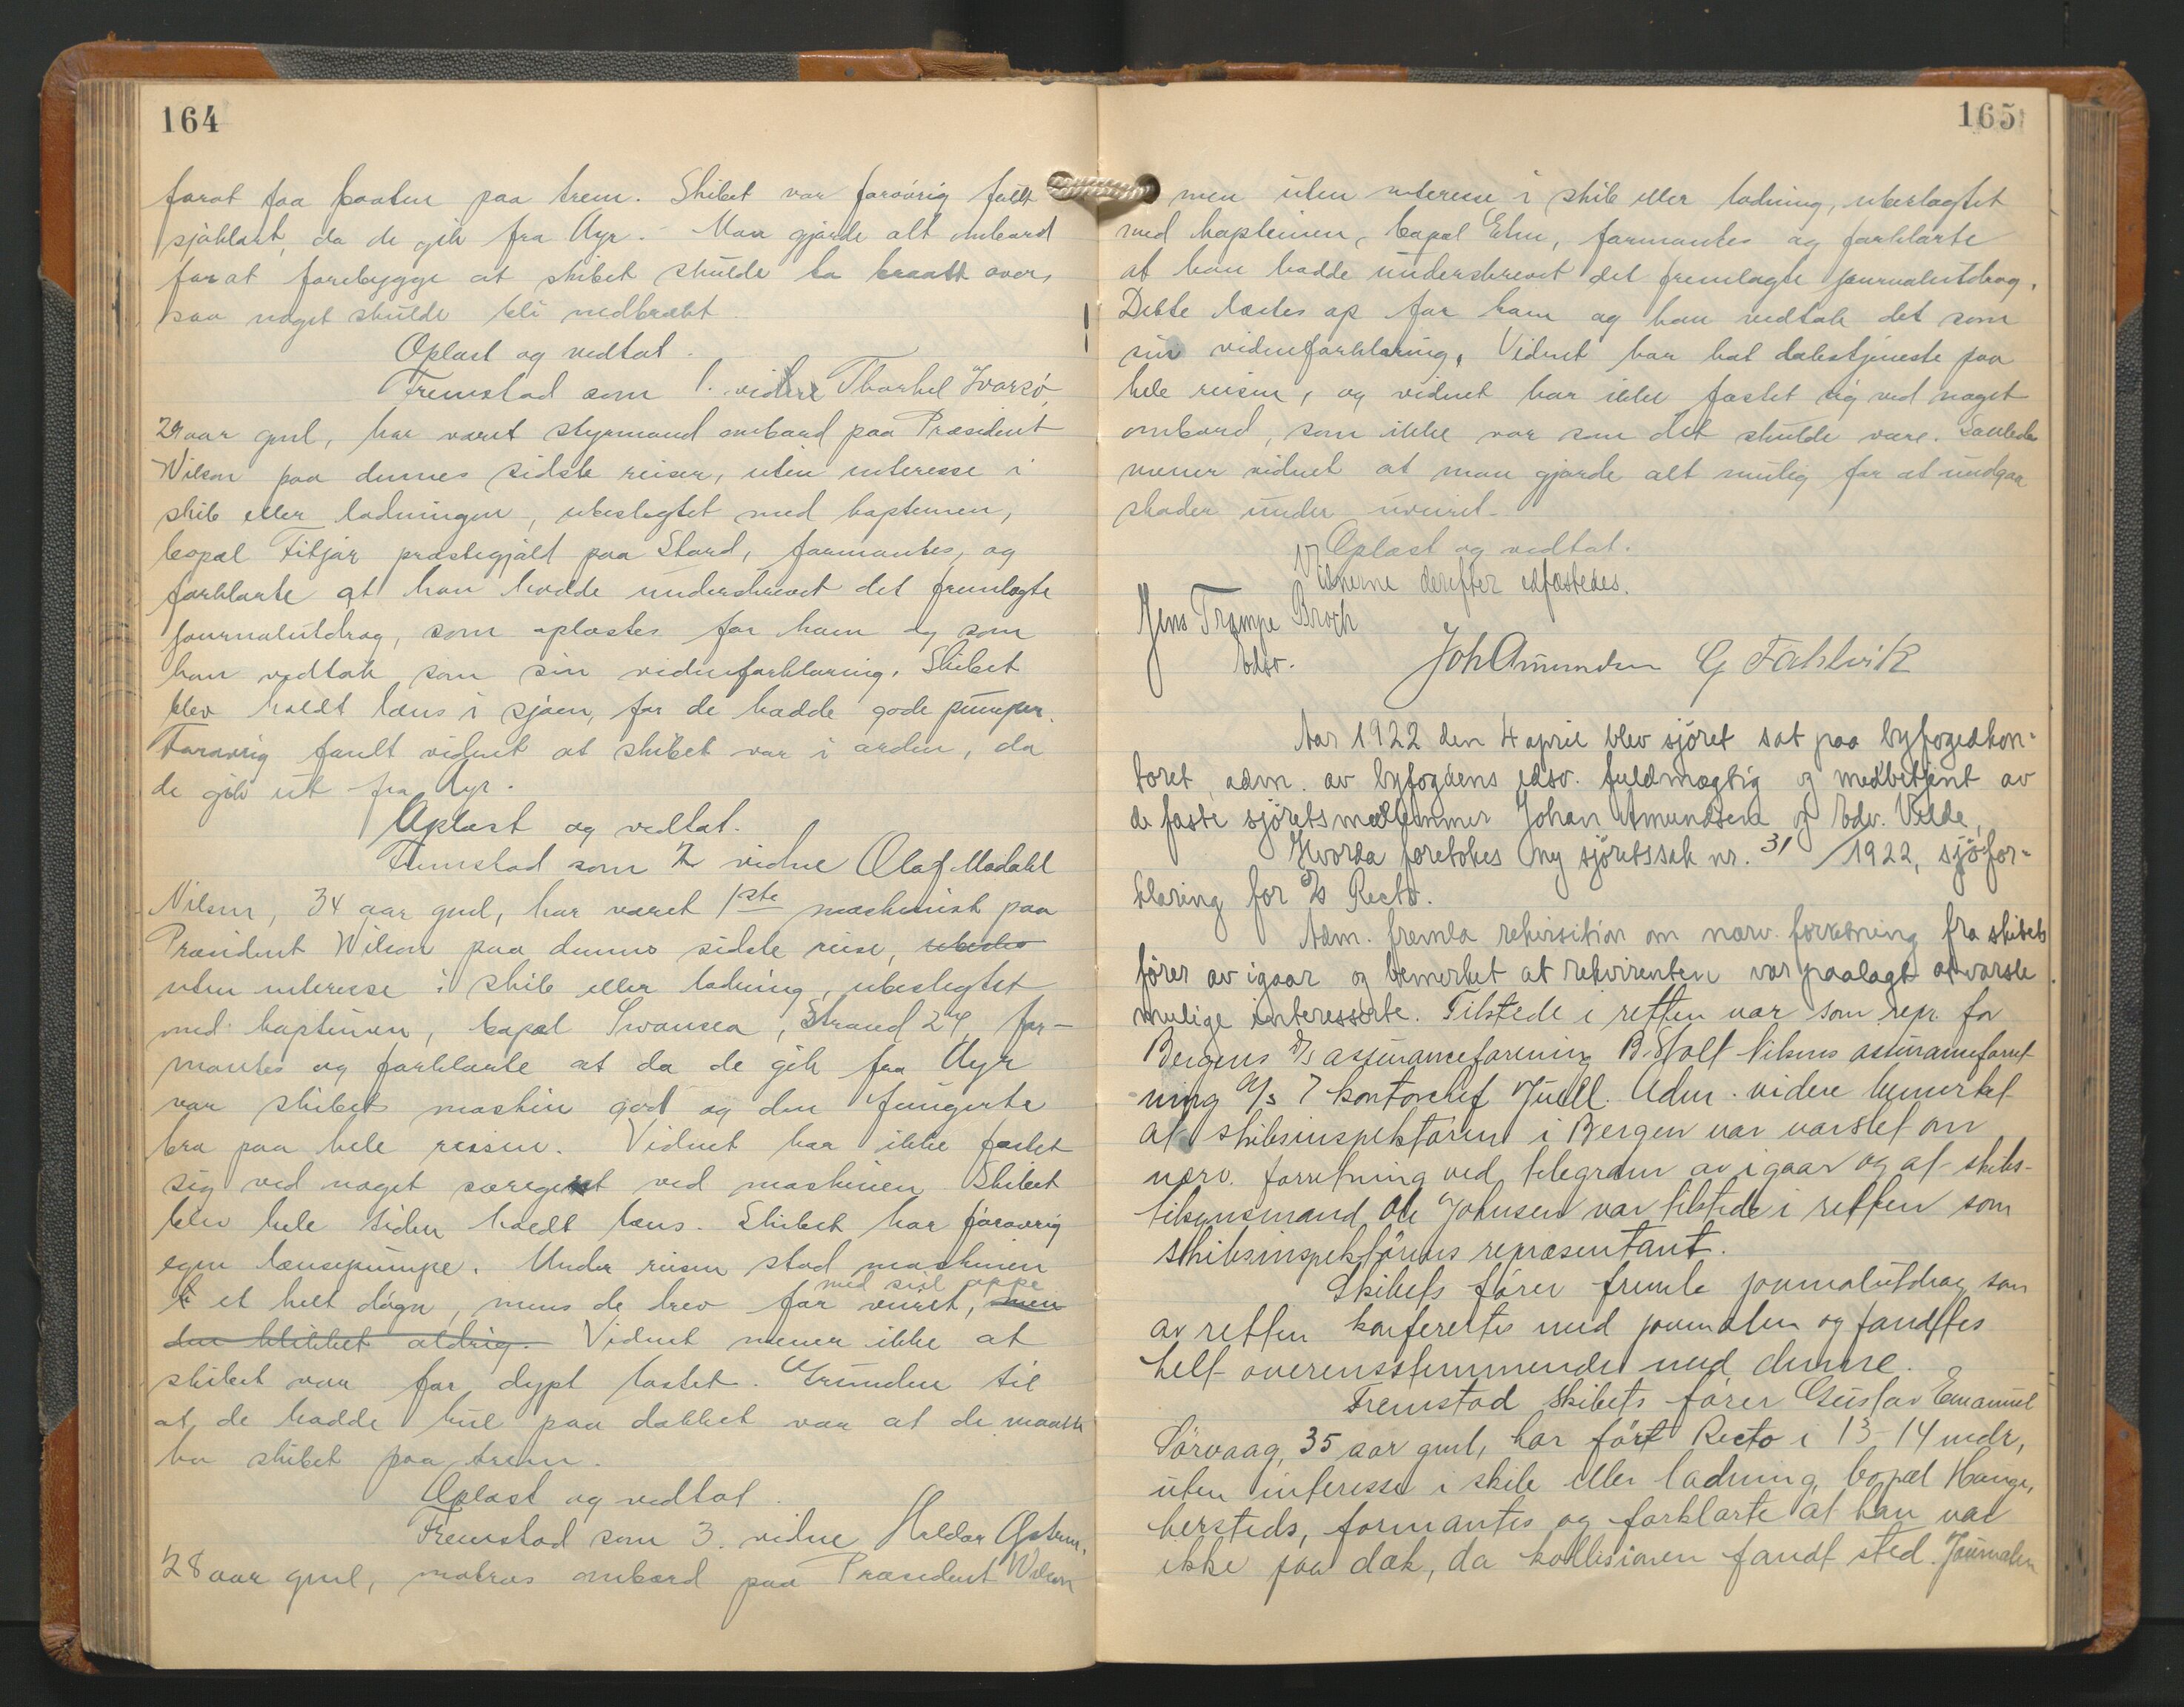 164
forat faa baaten paa trem. Skibet var forøvrig fuldt
sjøklart, da de gik fra Ayr. Man gjorde alt ombord
forat forebygge at skibet skulde ta braatt over,
saa noget skulde bli nedbrækt.
Oplæst og vedtat.
Fremstod som 1. vidne Thorkel Ivarsø,
29 aar gml, har været styrmand ombord paa Præsident
Wilson paa dennes sidste reiser, uten interesse i
skib eller ladningen, ubeslegtet med kapteinen,
bopæl Fitjar præstegjæld paa Stord, formantes, og
forklarte at han hadde underskrevet det fremlagte
journalutdrag, som oplæstes for ham og som
han vedtok som sin vidneforklaring. Skibet
blev holdt læns i sjøen, for de hadde gode pumper.
Forøvrig fandt vidnet at skibet var i orden, da
de gik ut fra Ayr.
Oplæst og vedtat.
Fremstod som 2 vidne Olaf Modahl
Nilsen, 34 aar gml, har været 1ste maskinist paa
Præsident Wilson paa dennes sidste reise,
uten interesse i skib eller ladning, ubeslegtet
med kapteinen, bopæl Swansea, Strand 24, for-
mantes og forklarte at da de gik fra Ayr
var skibets maskin god og den fungerte
bra paa hele reisen. Vidnet har ikke fæstet
sig ved noget særeget ved maskinen. Skibet
blev hele tiden holdt læns. Skibet har forøvrig
egen lænsepumpe. Under reisen stod maskinen
med seil oppe
et helt døgn, mens de drev for veiret, men
den klikket aldrig. Vidnet mener ikke at
skibet var for dypt lastet. Grunden til
at de hadde kul paa dækket var at de maatte
ha skibet paa trem.
Oplæst og vedtat.
Fremstod som 3. vidne Haldor
28 aar gml, matros ombord paa Præsident Wilson
165
men uten interesse i skib eller ladning, ubeslegtet
med kapteinen, bopæl Etne, formantes og forklarte
at han hadde underskrevet det fremlagte journalutdrag.
Dette læstes op for ham og han vedtok det som
sin vidneforklaring. Vidnet har hat dækstjeneste paa
hele reisen, og vidnet har ikke fæstet sig ved noget
ombord, som ikke var som det skulde være. Saaledes
mener vidnet at man gjorde alt mulig for at undgaa
skader under uveiret.
Oplæst og vedtat.
Vidnerne derefter edfæstedes.
Jens Trampe Broch
edsv.
Joh Amundsen G Fahlvik
Aar 1922 den 4 april blev sjøret sat paa byfogedkon-
toret, adm. av byfogdens edsv. fuldmægtig og medbetjent av
de faste sjøretsmedlemmer Johan Amundsen og Edv. Velde,
Hvorda foretokes ny sjøretssak nr. 31/1922, sjøfor-
klaring for D/s Recto.
Adm. fremla rekvisition om nærv. forretning fra skibets
fører av igaar og bemerket at rekvirenten var paalagt at varsle
mulige interesserte. Tilstede i retten var som repr. for
Bergens D/s assuranceforening B. Stolt Nilsens assuranceforret-
ning A/s ? kontorchef Juell. Adm. videre bemerket
at skibsinspektøren i Bergen var varslet om
nærv. forretning ved telegram av igaar og at skibs-
tilsynsmand Ole Johnsen var tilstede i retten som
skibsinspektørens repræsentant.
Skibets fører fremla journalutdrag som
av retten konfertes med journalen og fandtes
helt overensstemmende med denne.
Fremstod skibets fører Gustav Emanuel
Sørvaag, 35 aar gml, har ført Recto i 13-14 mdr,
uten interesse i skib eller ladning, bopæl Hauge,
hersteds, formantes og forklarte at han var
ikke paa dæk, da kollisionen fandt sted. Journalen